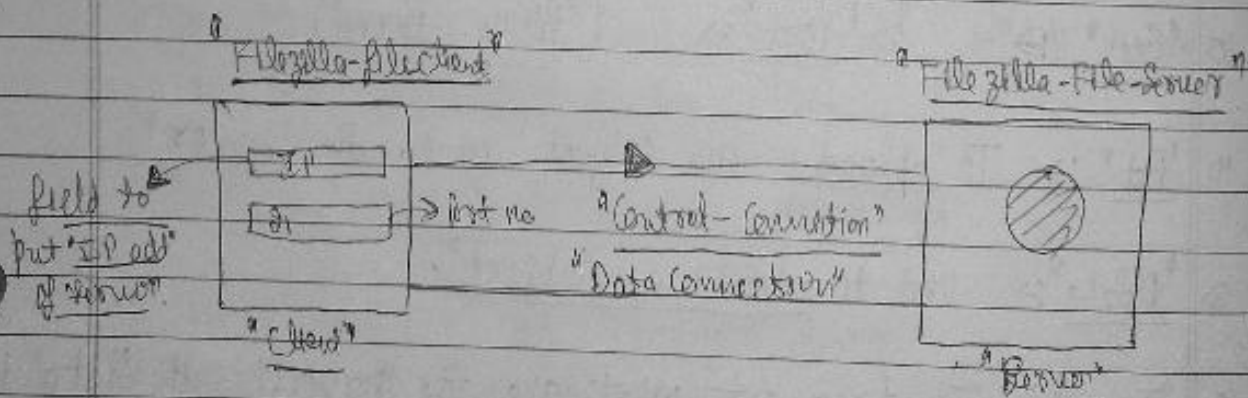 "Filezilla-fileclient"
"Filezilla-File-Server"
IP
field to
put "IP add"
of server".
21
port no
"Control-Connection"
"Data Connection"
"Client"
"Server"